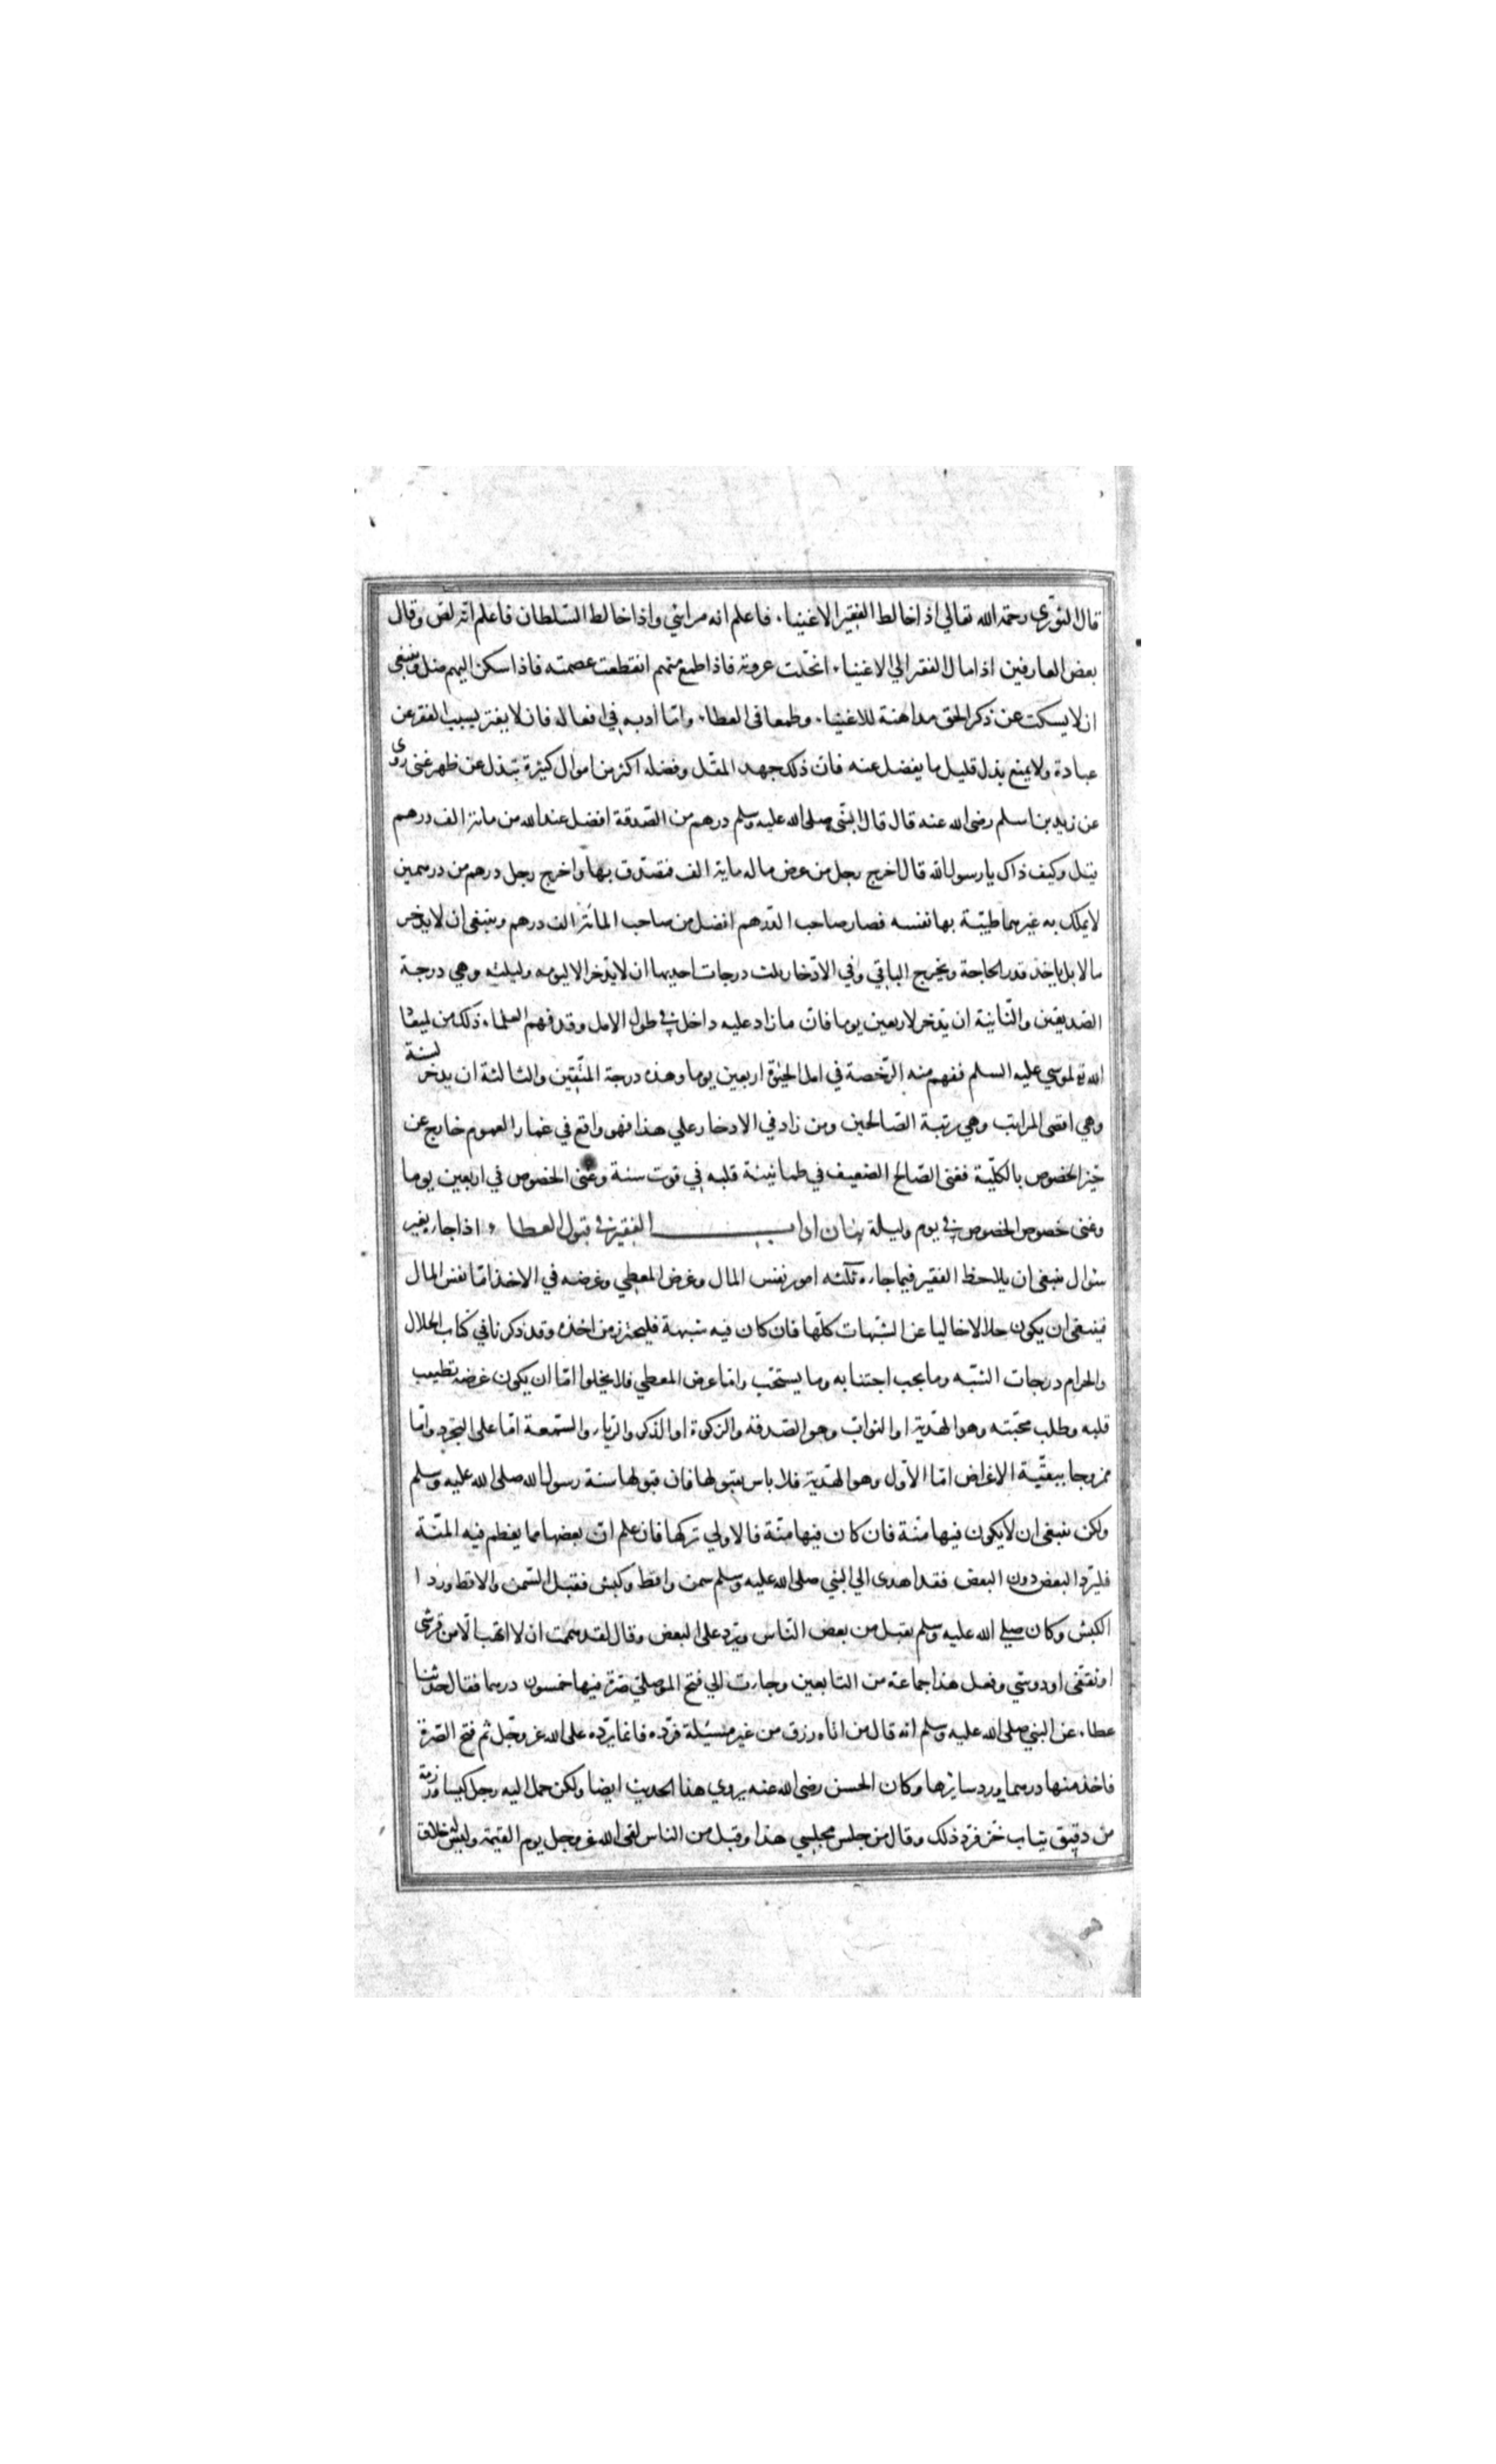 قال الثورى رحمة الله تعالي اذا خالط الفقير الاغنياء فاعلم انه مرائي واذا خالط السلطان فاعلم انه لص وقال
بعض العارفين اذا مال الفقر الي الاغنياء انحلت عروته فاذا طمع منهم انقطعت عصمته فاذا سكن اليهم ضل وينبغى
ان لا يسكت عن ذكر الحق مداهنة للاغنياء وطمعا فى العطاء واما ادبه في افعاله فان لا يفتر بسبب الفقر عن
عبادة ولا يمنع بذل قليل ما يفضل عنه فان ذلك جهد المقل وفضله اكثر من اموال كثيرة تبذل عن ظهر غنى روى
عن زيد بن اسلم رضى الله عنه قال قال النبى صلى الله عليه وسلم درهم من الصدقة افضل عند الله من مائة الف درهم
قيل وكيف ذاك يا رسول الله قال اخرج رجل من عرض ماله ماية الف فتصدق بها واخرج رجل درهم من درهمين
لا يملك به غيرهما طيبة بها نفسه فصار صاحب الدرهم افضل من صاحب المائة الف درهم وينبغى ان لا يدخر
مالا بل ياخذ قدر الحاجة ويخرج الباقي وفي الادخار ثلث درجات احديها ان لا يدخر الا ليومه وليلته وهي درجة
الصديقين والثانية ان يدخر لاربعين يوما فان ما زاد عليه داخل في طول الامل وقد فهم العلماء ذلك من ميعاد
الله لموسي عليه السلم ففهم منه الرخصة في امل الحيوة اربعين يوما وهذه درجة المتقين والثالثة ان يدخر لسنة
وهي اقصى المراتب وهي رتبة الصالحين ومن زاد في الادخار علي هذا فهو واقع في غمار العموم خارج عن
حيز الخصوص بالكلية فغنى الصالح الضعيف في طمانينة قلبه في قوت سنة وغنى الخصوص في اربعين يوما
وغنى خصوص الخصوص في يوم وليلة بيان اداب الفقير في قبول العطا اذا جاء بغير
سؤال ينبغى ان يلاحظ الفقير فيما جاءه ثلثه امور نفس المال وغرض المعطي وغرضه في الاخذ اما نفس المال
فينبغى ان يكون حلالا خاليا عن الشبهات كلها فان كان فيه شبهة فليحترز من اخذه وقد ذكرنا في كتاب الحلال
والحرام درجات الشبه وما يجب اجتنابه وما يستحب واما عرض المعطي فلا يخلوا اما ان يكون غرضه تطييب
قلبه وطلب محبته وهو الهدية او الثواب وهو الصدقة والزكوة او الذكر والرياء والسمعة اما على التجرد واما
ممزوجا ببقية الاغراض اما الاول وهو الهدية فلا باس بقبولها فان قبولها سنة رسول الله صلى الله عليه وسلم
ولكن ينبغى ان لا يكون فيها منة فان كان فيها منة فالاولي تركها فان علم ان بعضها مما يعظم فيه المنة
فليرد البعض دون البعض فقد اهدى الي النبي صلى الله عليه وسلم سمن واقط وكبش فقبل السمن والاقط ورد ا
الكبش وكان صلي الله عليه وسلم يقبل من بعض الناس ويرد على البعض وقال لقد هممت ان لا اتهب الا من قرشى
او ثقفى او دوسي وفعل هذا جماعة من التابعين وجاءت الي فتح الموصلي صرة فيها خمسون درهما فقال حدثنا
عطاء عن النبي صلى الله عليه وسلم انه قال من اتاه رزق من غير مسئلة فرده فانما يرده على الله عز وجل ثم فتح الصرة
فاخذ منها درهما ورد سائرها وكان الحسن رضى الله عنه يروي هذا الحديث ايضا ولكن حمل اليه رجل كيسا ورزمة
من دقيق ثياب خز فرد ذلك وقال من جلس مجلسي هذا وقبل من الناس لقى الله عز وجل يوم القيمة وليس له خلاق